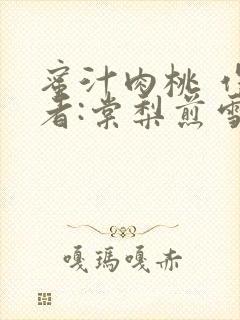 蜜汁肉桃 作
者:棠梨煎雪
嘎瑪嘎赤